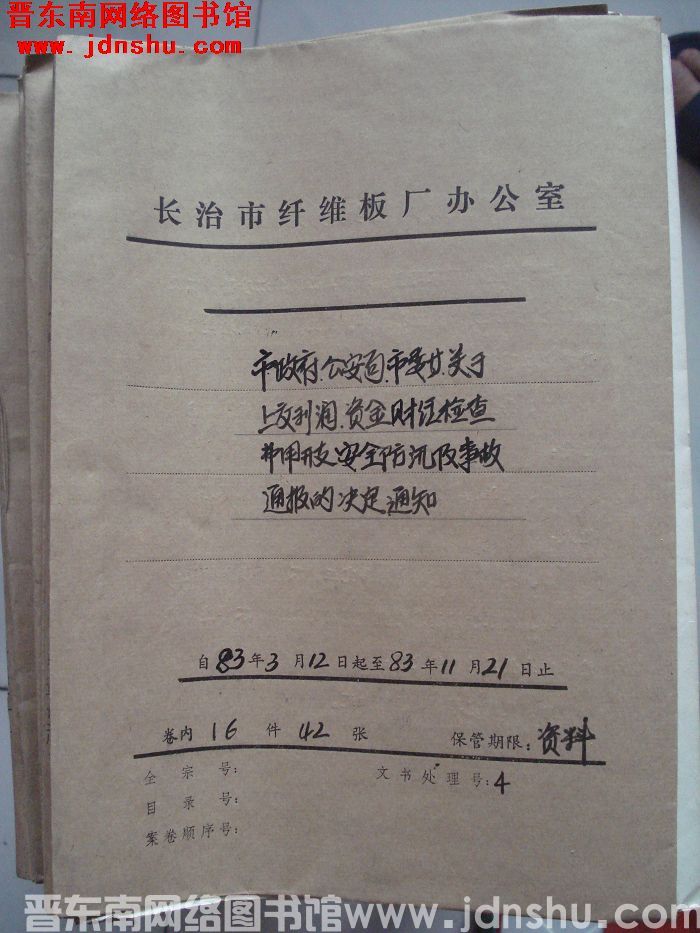 晋东南网络图书馆
www.jdnshu.com
长治市纤维板厂办公室
市政府.公安局.市委廿.关于
上交利润.资金财经检查
费用开支安全防汛及事故
通报的决定.通知
自83年3月12日起至83年11月21日止
卷内16件42张 保管期限:资料
全宗号: 文书处理号:4
目录号:
案卷顺序号:
晋东南网络图书馆www.jdnshu.com